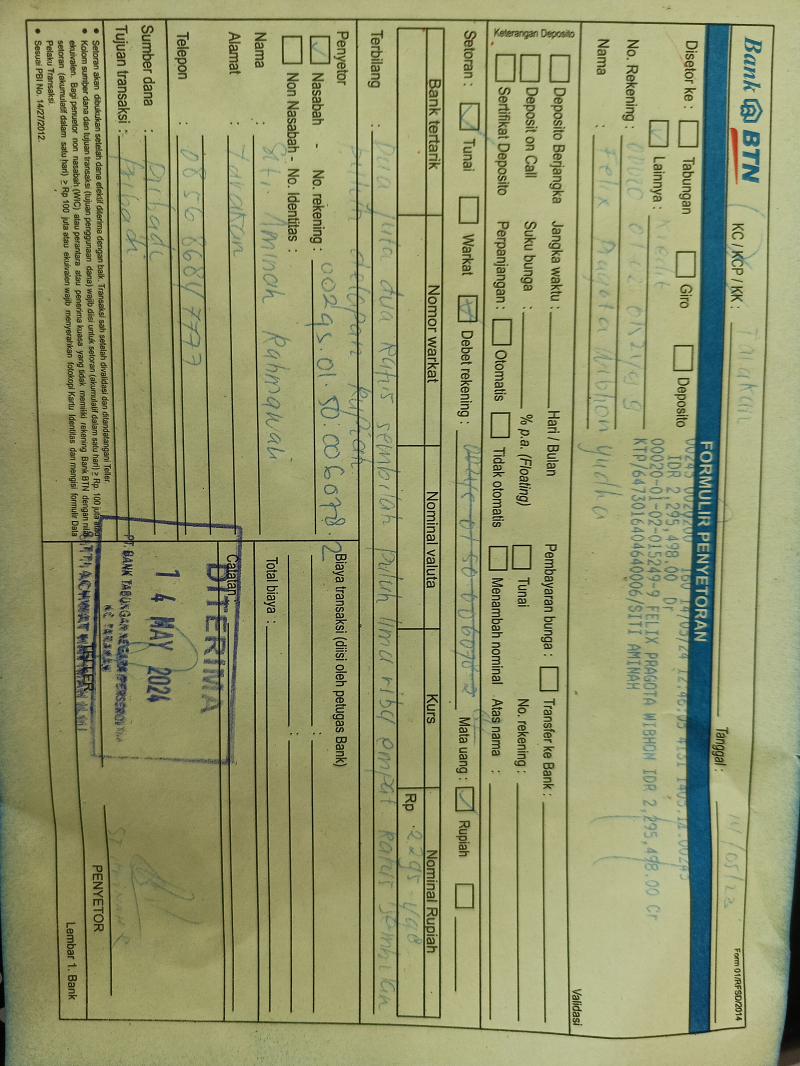 Bank BTN
KC / KCP / KK : Tarakan
Tanggal : 14/05/24
Form 01/RFSD/2014
FORMULIR PENYETORAN
Disetor ke : Tabungan Giro Deposito
Lainnya : Kredit
No. Rekening :
Nama : Felix Pragota Wibhon Yudha
14/05/24 12:46:05 4131 1405.11.00245
IDR 2,295,498.00 Dr
00020-01-02-015249-9 FELIX PRAGOTA WIBHON IDR 2,295,498.00 Cr
KTP/6473016404640006/SITI AMINAH
Validasi
Keterangan Deposito
Deposito Berjangka Jangka waktu : Hari / Bulan Pembayaran bunga : Transfer ke Bank :
Deposit on Call Suku bunga : % p.a. (Floating) Tunai No. rekening :
Sertifikat Deposito Perpanjangan : Otomatis Tidak otomatis Menambah nominal Atas nama :
Setoran : Tunai Warkat Debet rekening : Mata uang : Rupiah
Bank tertarik Nomor warkat Nominal valuta Kurs Nominal Rupiah
Rp 2.295.498
Terbilang : Dua juta dua ratus sembilan puluh lima ribu empat ratus sembilan
puluh delapan rupiah
Penyetor
Nasabah - No. rekening : 00295.01.50.006078.2
Non Nasabah - No. Identitas :
Nama : Siti Aminah Rahmawati
Alamat : Tarakan
Telepon : 0856 8684 7777
Sumber dana : Pribadi
Tujuan transaksi : Pribadi
Biaya transaksi (diisi oleh petugas Bank)
Total biaya :
Catatan :
DITERIMA
14 MAY 2024
PT. BANK TABUNGAN NEGARA (PERSERO) Tbk
KC TARAKAN
TELLER
PENYETOR
• Setoran akan dibukukan setelah dana efektif diterima dengan baik. Transaksi sah setelah divalidasi dan ditandatangani Teller
• Kolom sumber dana dan tujuan transaksi (tujuan penggunaan dana) wajib diisi untuk setoran (akumulatif dalam satu hari) ≥ Rp. 100 juta atau
ekuivalen. Bagi penyetor non nasabah (WIC) atau perantara atau penerima kuasa yang tidak memiliki rekening Bank BTN dengan nilai
setoran (akumulatif dalam satu hari) ≥ Rp 100 juta atau ekuivalen wajib menyerahkan fotokopi Kartu Identitas dan mengisi formulir Data
Pelaku Transaksi.
• Sesuai PBI No. 14/27/2012.
Lembar 1. Bank